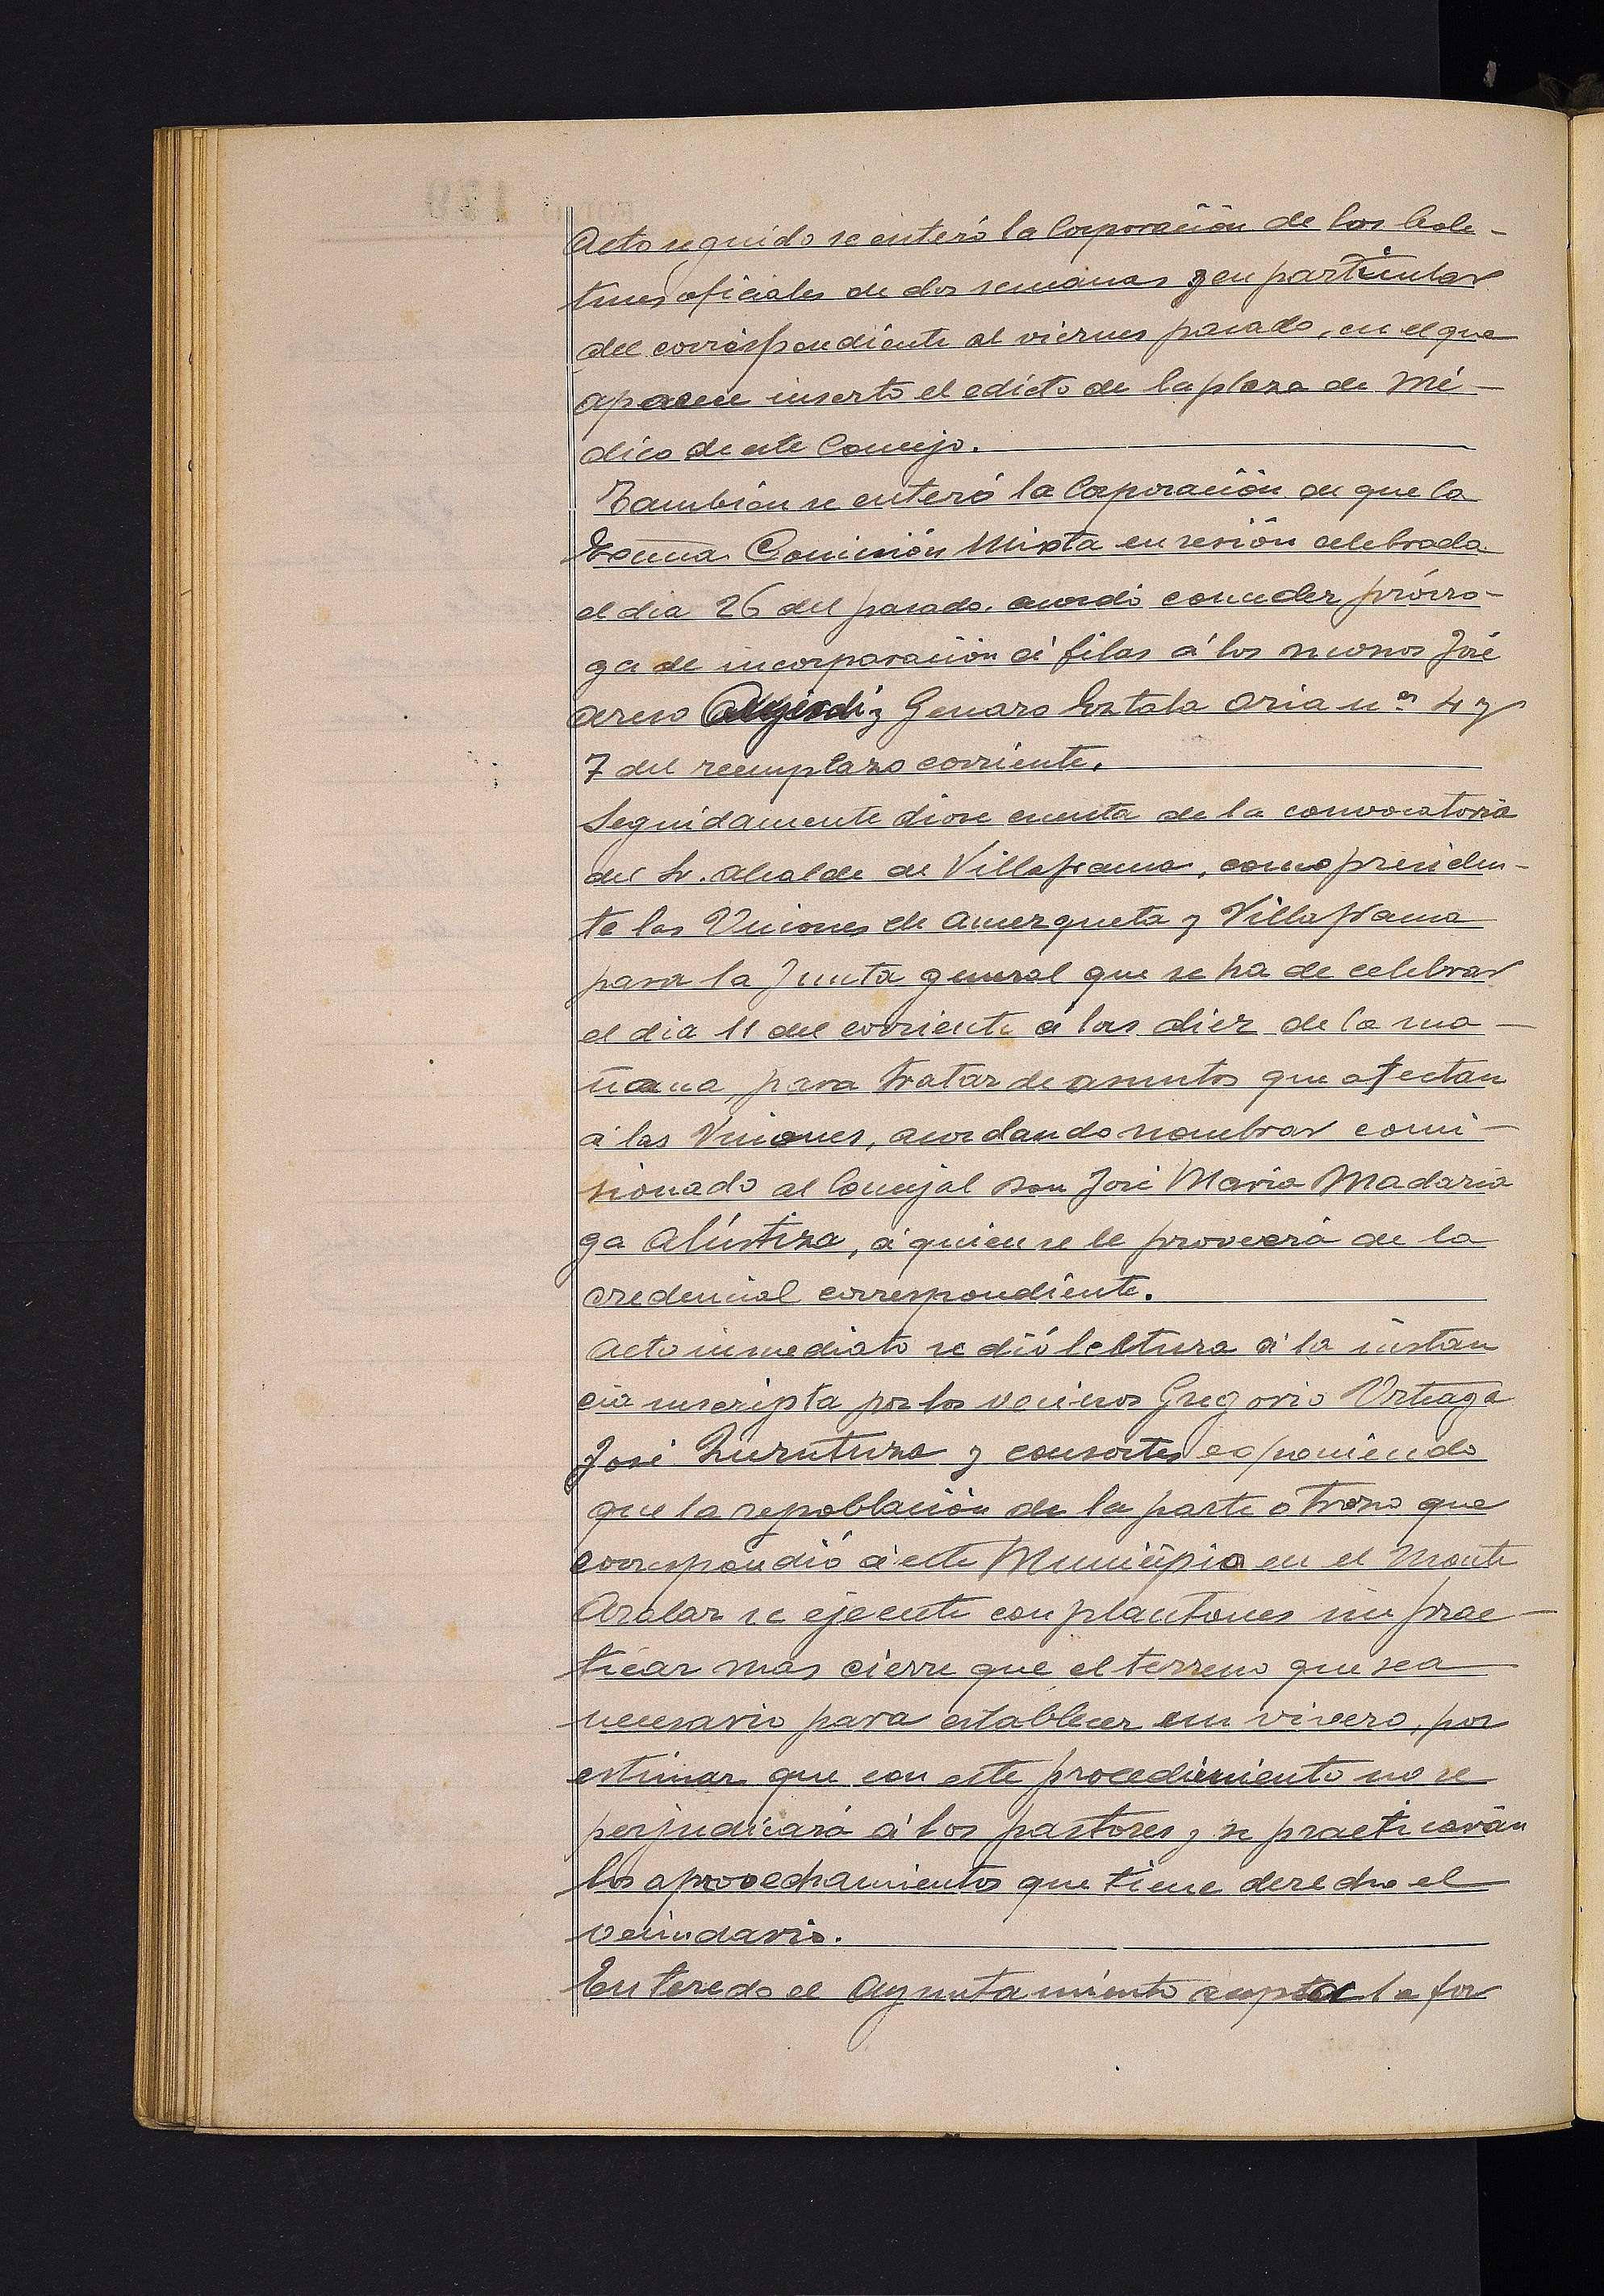 Acto seguido se enteró la Corporación de los bole-
tines oficiales de dos semanas y en particular
del correspondiente al viernes pasado, en el que
aparece inserto el edicto de la plaza de Mé-
dico de este Concejo.
También se enteró la Corporación de que la
Excma. Comisión Mixta en sesión celebrada
el dia 26 del pasado, acordó conceder prórro-
ga de incorporación á filas á los mozos José
y Genaro Oria nos 4 y
7 del reemplazo corriente.
Seguidamente diose cuenta de la convocatoria
del Sr. Alcalde de Villafranca, como presiden-
te las Uniones de Amezqueta y Villafranca
para la Junta general que se ha de celebrar
el dia 11 del corriente á las diez de la ma-
ñana, para tratar de asuntos que afectan
á las Uniones, acordando nombrar comi-
sionado al Concejal Don José Maria Madaria
ga Alústiza, á quien se le proveerá de la
credencial correspondiente.
Acto inmediato se dió lectura á la instan
cia suscripta por los vecinos Gregorio Urteaga
José Zurutuza y consortes exponiendo
que la repoblación de la parte o trozo que
correspondió á este Municipio en el Monte
Aralar se ejecute con plantones sin prac-
ticar mas cierre que el terreno que sea
necesario para establecer un vivero, por
estimar que con este procedimiento no se
perjudicará á los pastores y se practicarán
los aprovechamientos que tiene derecho el
vecindario.
Enterado el Ayuntamiento aceptar la for